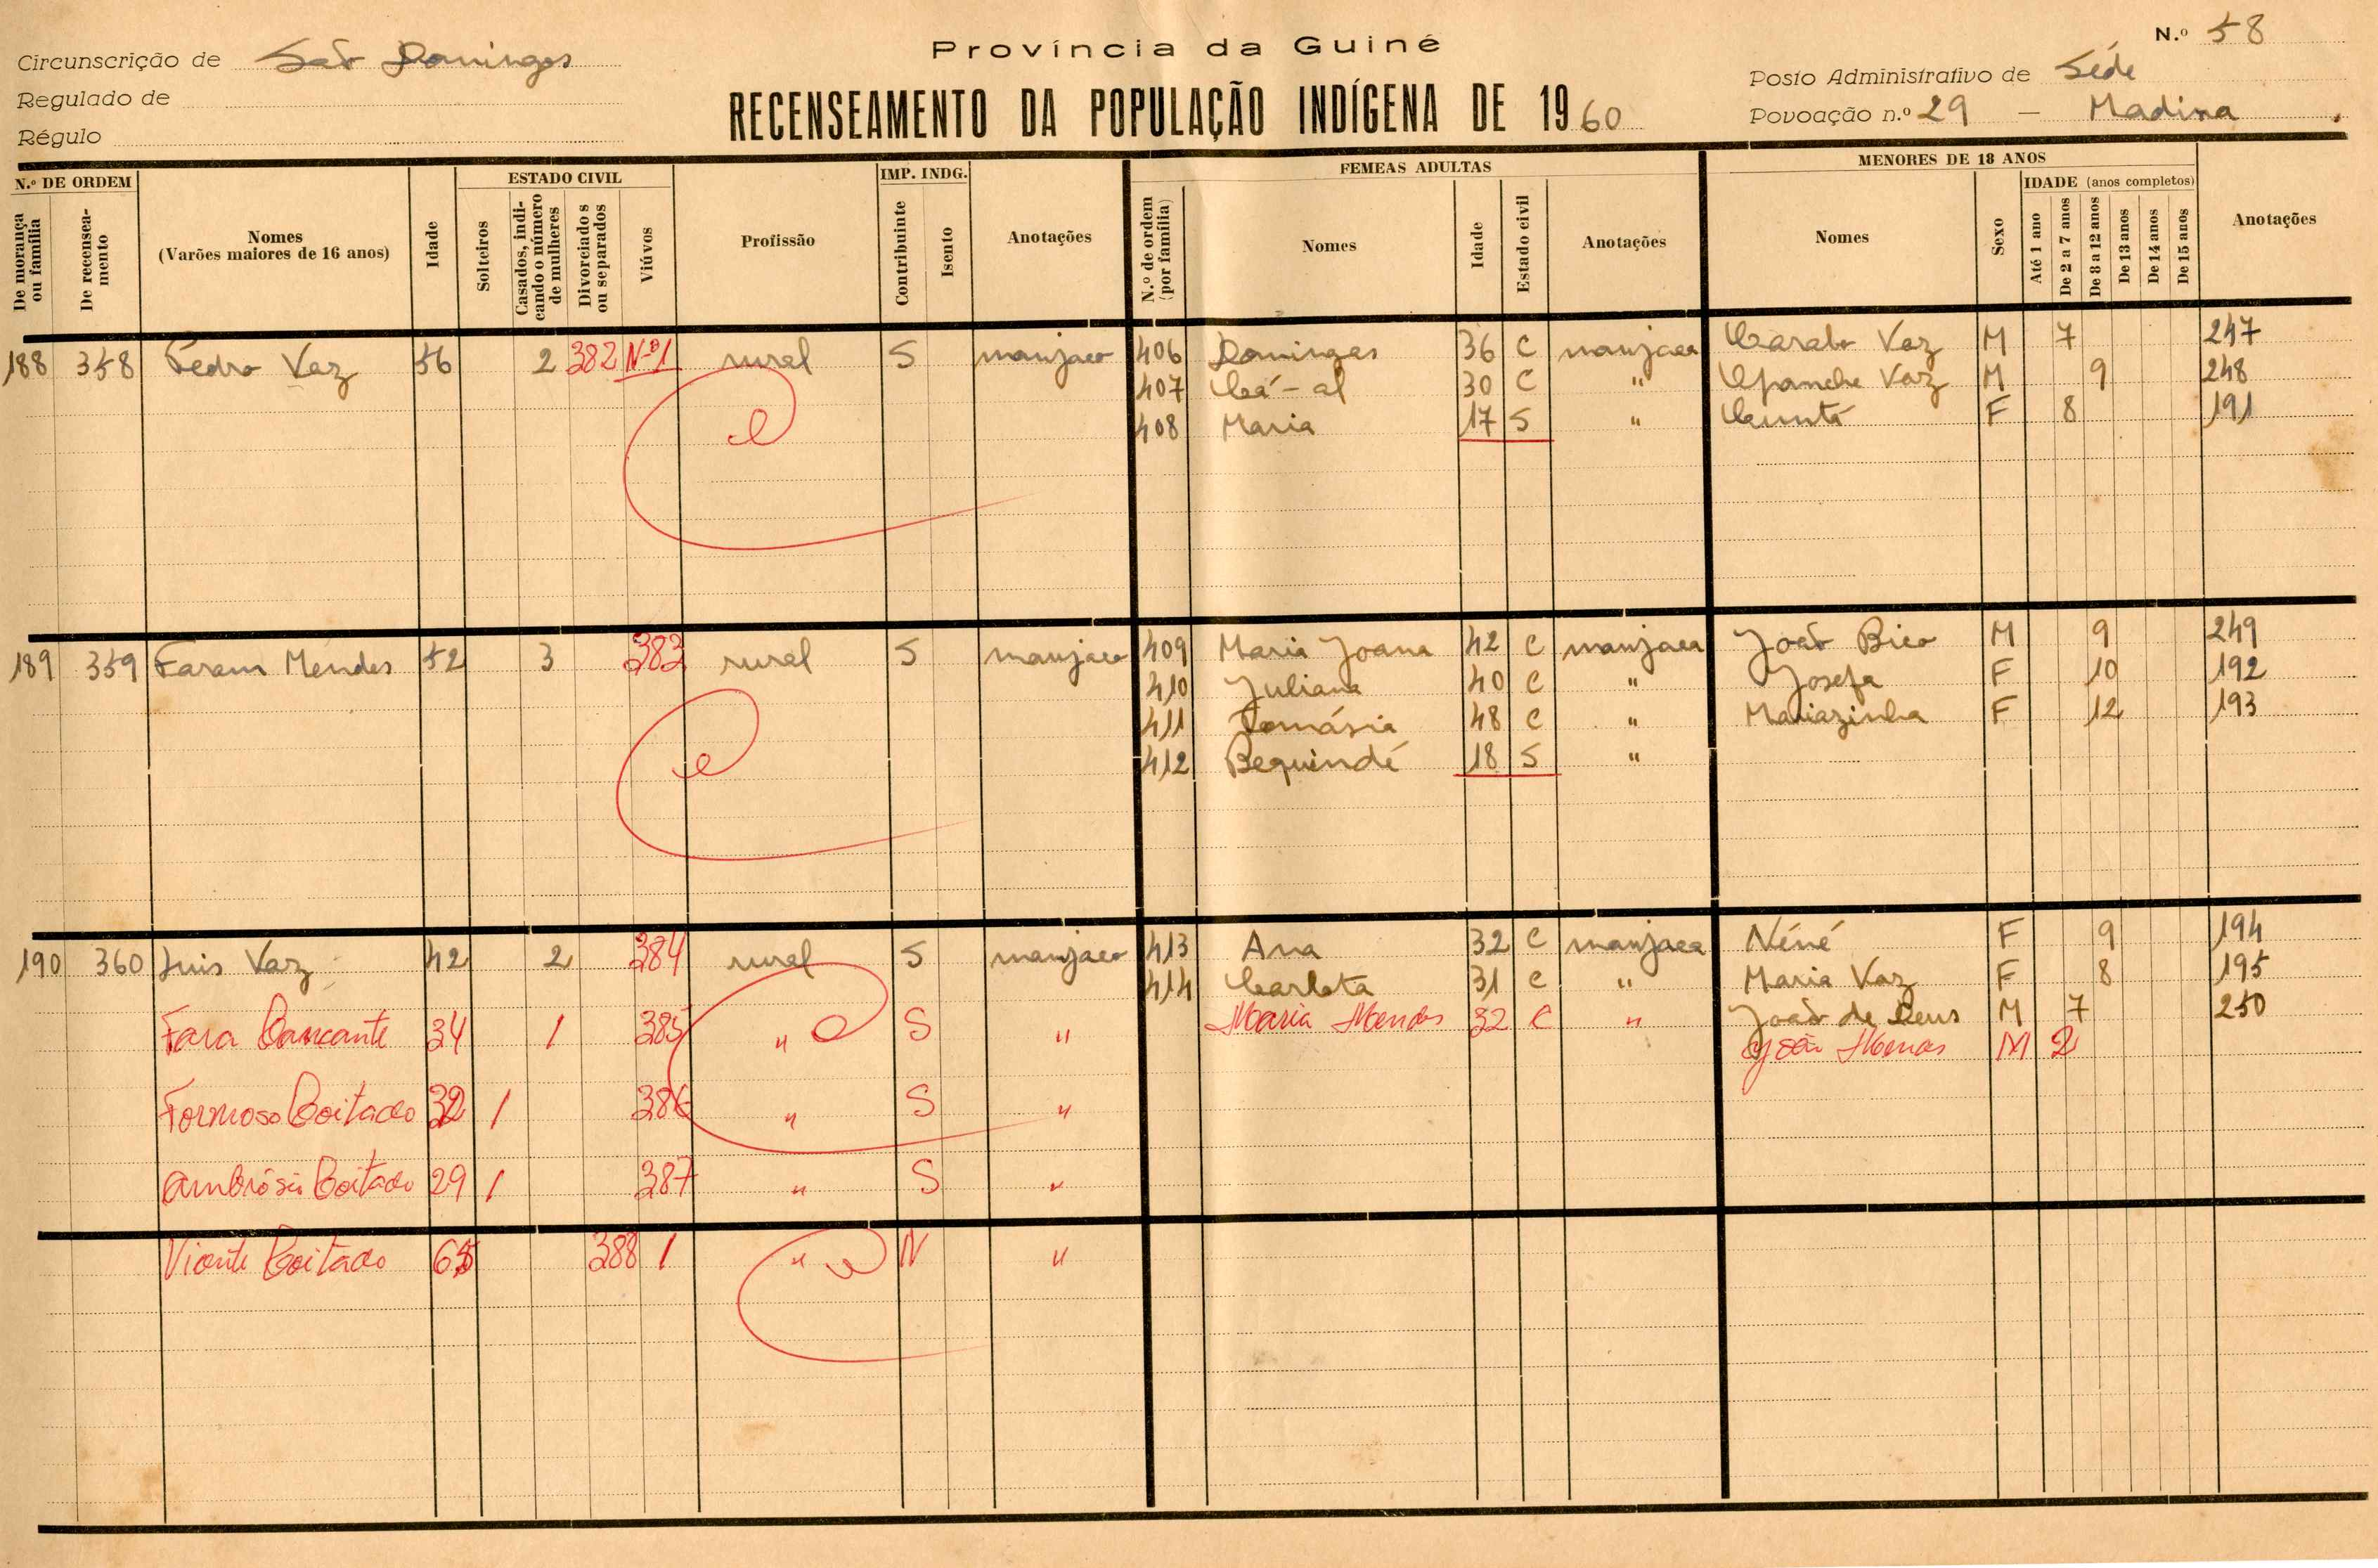 Província da Guiné
N.º 58
Circunscrição de São Domingos
Regulado de
Régulo
RECENSEAMENTO DA POPULAÇÃO INDÍGENA DE 1960
Posto Administrativo de Séde
Povoação n.º 29 — Madina
N.º DE ORDEM
De morança ou família
De recensea-mento
Nomes
(Varões maiores de 16 anos)
Idade
ESTADO CIVIL
Solteiros
Casados, indi-cando o número de mulheres
Divorciados ou separados
Viúvos
Profissão
IMP. INDG.
Contribuinte
Isento
Anotações
FEMEAS ADULTAS
N.º de ordem (por família)
Nomes
Idade
Estado civil
Anotações
MENORES DE 18 ANOS
Nomes
Sexo
IDADE (anos completos)
Até 1 ano
De 2 a 7 anos
De 8 a 12 anos
De 13 anos
De 14 anos
De 15 anos
Anotações
188 358 Pedro Vaz 56 2 382 Nº1 rural S manjaco 406 Domingas 36 C manjaca Vaz M 7 247
407 Cá-al 30 C " Vaz M 9 248
408 Maria 17 S " F 8 191
189 359 Faram Mendes 52 3 383 rural S manjaco 409 Maria Joana 42 C manjaca João Bico M 9 249
410 Juliana 40 C " Josefa F 10 192
411 Tomásia 48 C " Mariazinha F 12 193
412 Bequindé 18 S "
190 360 Luis Vaz 42 2 384 rural S manjaco 413 Ana 32 C manjaca Néné F 9 194
414 Carlota 31 C " Maria Vaz F 8 195
Fara 34 1 385 " S " Maria Mendes 32 C " João de Deus M 7 250
João M 2
Formoso Coitado 32 1 386 " S "
Ambrósio Coitado 29 1 387 " S "
Vicente Coitado 65 388 1 " N "